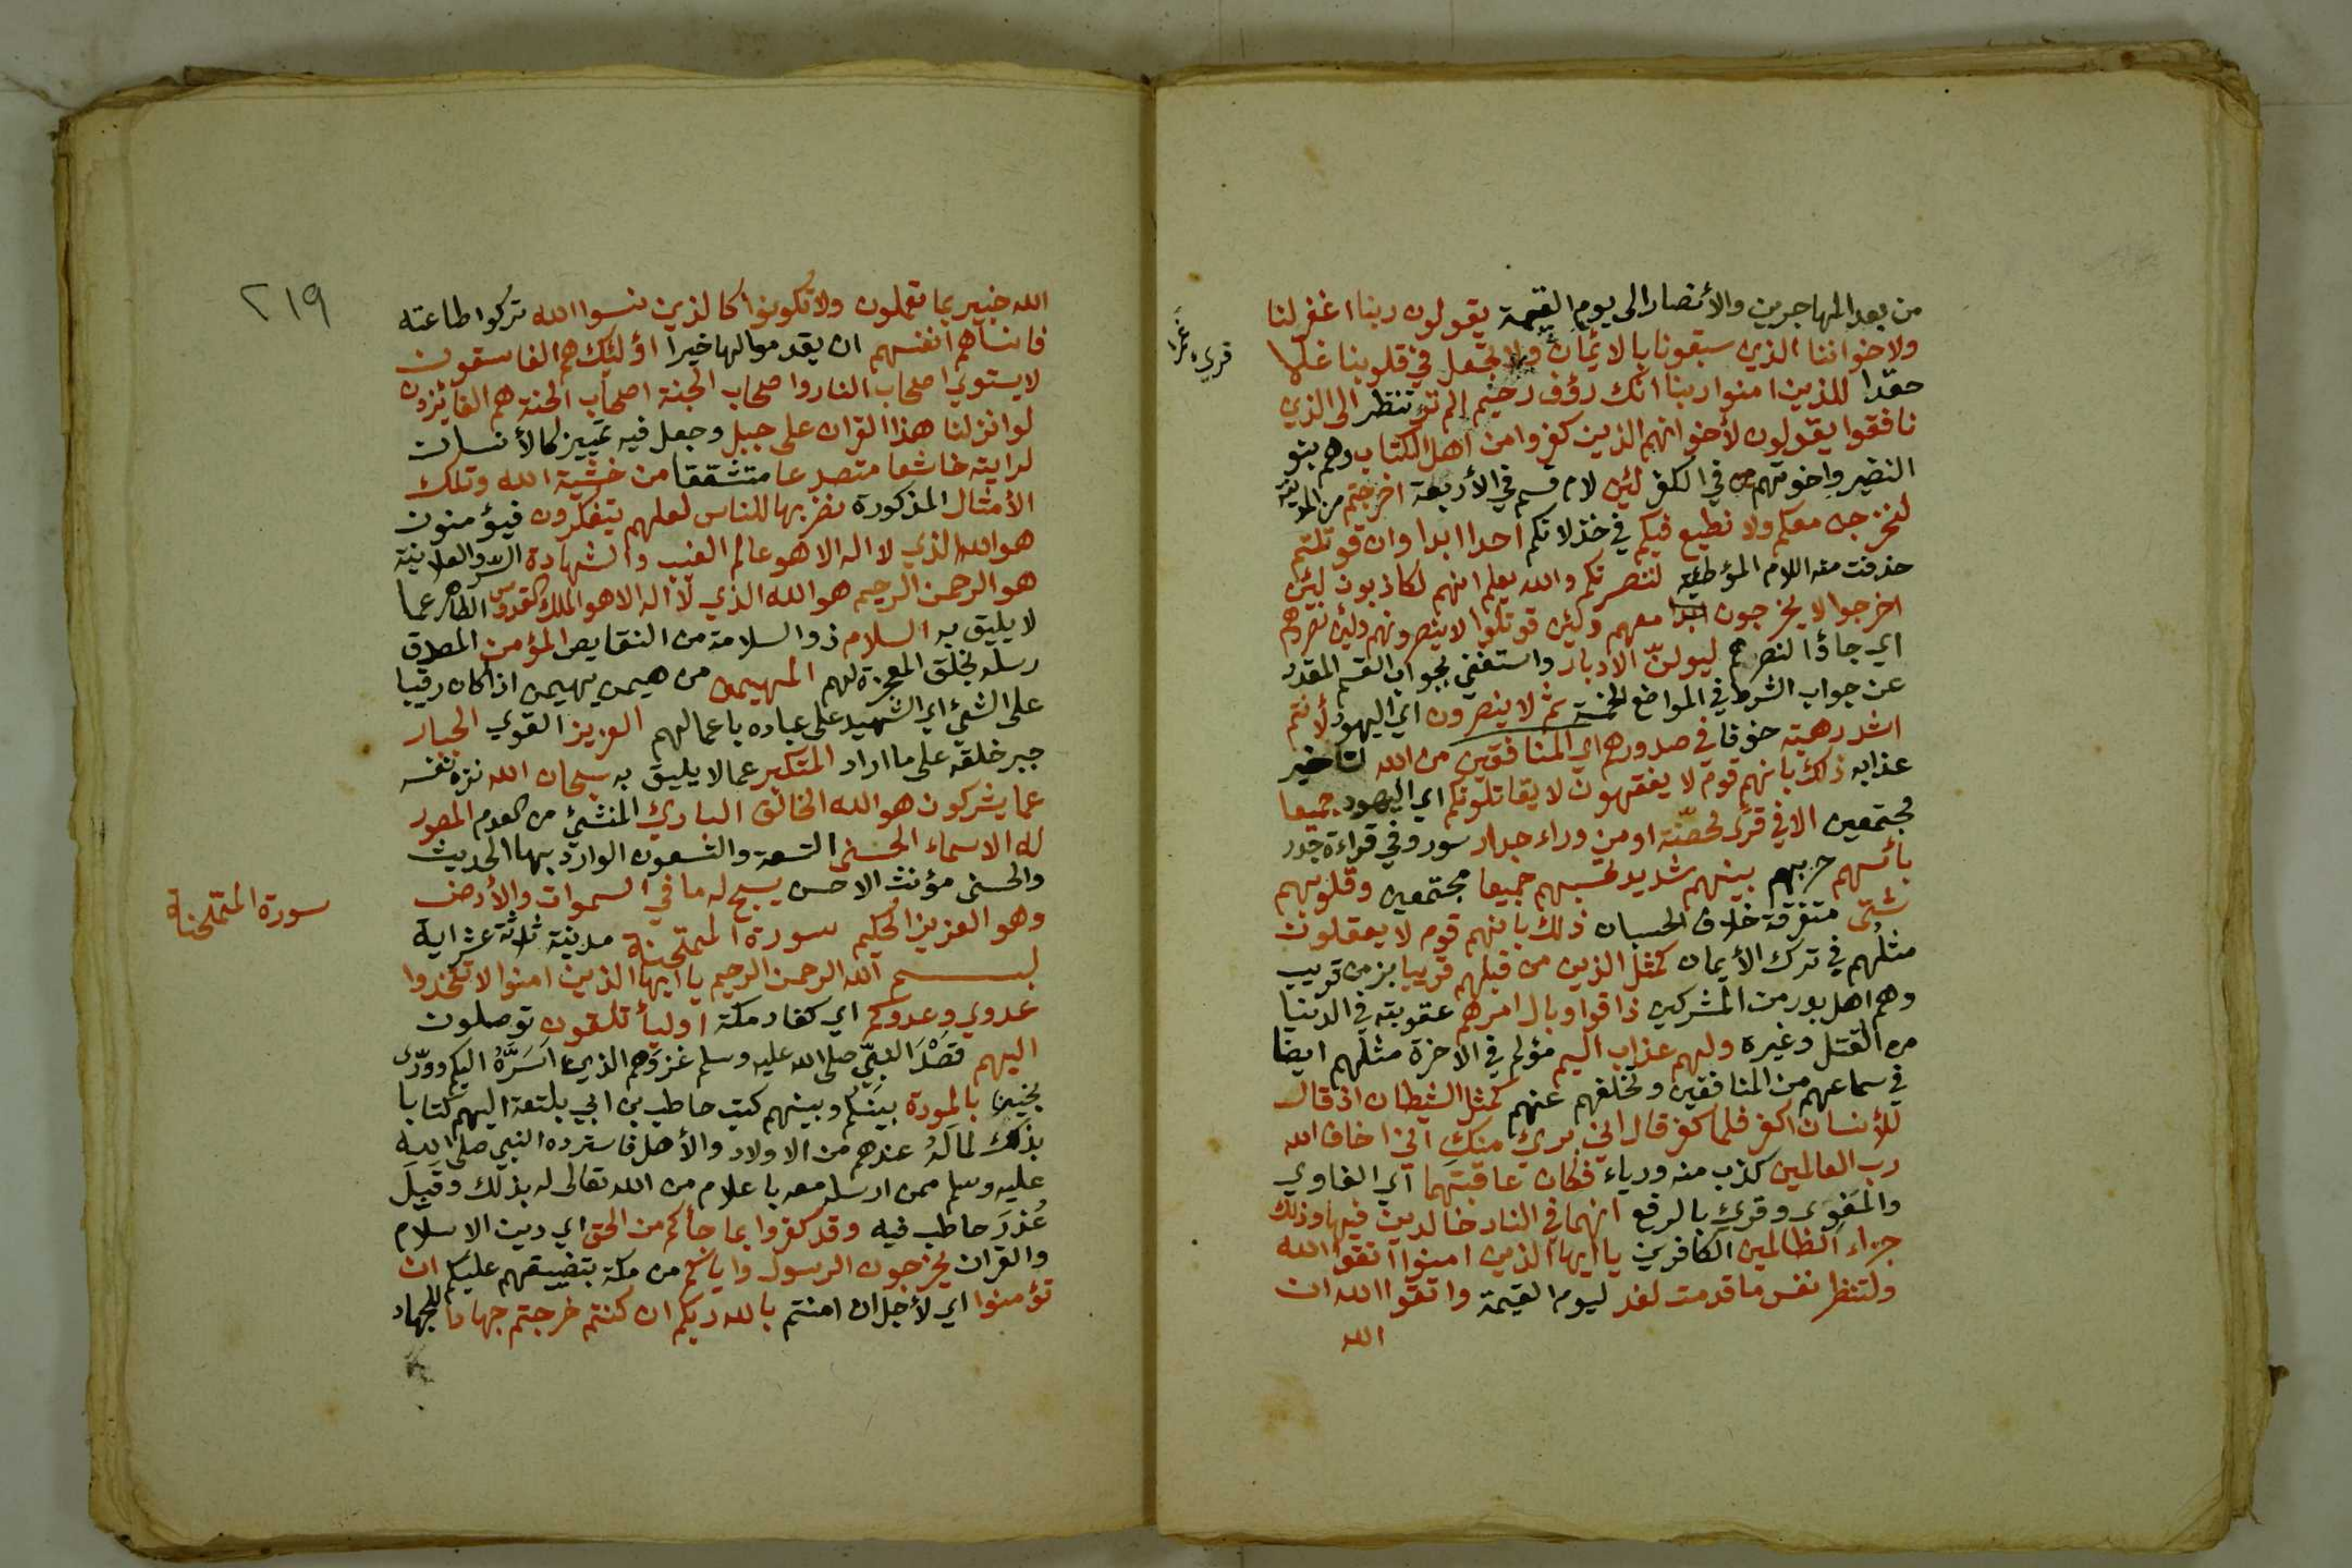 من بعد المهاجرين والأنصار الى يوم القيمة يقولون ربنا اغفر لنا
ولاخواننا الذين سبقونا بالائمان ولا تجعل في قلوبنا غلا
قرئ غمرا
حقدا للذين امنوا ربنا انك رؤف رحيم الم تر تنظر الى الذين
نافقوا يقولون لأخوانهم الذين كفروا من اهل الكتاب وهم بنو
النضير واخوتهم في الكفر لئن لام قسم في الأربعة اخرجتم من المدينة
لنخرجن معكم ولا نطيع فيكم في خذلانكم احدا ابدا وان قوتلتم
حذفت منه اللام المؤطئة لننصرنكم والله يعلم انهم لكاذبون لئن
اخرجوا لا يخرجون معهم ولئن قوتلوا لا ينصرونهم ولئن نصروهم
اي جاؤا لنصرهم ليولنّ الادبار واستغنى بجواب القسم المقدر
عن جواب الشرط في المواضع الخمسة ثم لا ينصرون اي اليهود لأنتم
اشد رهبة خوفا في صدورهم اي المنافقين من الله لتاخير
عذابه ذلك بانهم قوم لا يفقهون لا يقاتلونكم اي اليهود جميعا
مجتمعين الا في قرًى محصّنة او من وراء جدار سور وفي قراءة جدر
بأسهم حربهم بينهم شديد تحسبهم جميعا مجتمعين وقلوبهم
شتى متفرقة خلاف الحسبان ذلك بانهم قوم لا يعقلون
مثلهم في ترك الأيمان كمثل الذين من قبلهم قريبا بزمن قريب
وهم اهل بدر من المشركين ذاقوا وبال امرهم عقوبته في الدنيا
من القتل وغيره ولهم عذاب اليم مؤلم في الاخرة مثلهم ايضا
في سماعهم من المنافقين وتخلفهم عنهم كمثل الشيطان اذ قال
للأنسان اكفر فلما كفر قال اني بريء منك اني اخاف الله
رب العالمين كذب منه ورياء فكان عاقبتهما اي الغاوي
والمَغوى وقرئ بالرفع انهما في النار خالدين فيها وذلك
جزاء الظالمين الكافرين يا ايها الذين امنوا اتقوا الله
ولتنظر نفس ما قدمت لغد ليوم القيمة واتقوا الله ان
الله
٢١٩
الله خبير بما تعملون ولا تكونوا كالذين نسوا الله تركوا طاعته
فانساهم انفسهم ان يقدموا لها خيرا اؤلئك هم الفاسقون
لا يستوي اصحاب النار واصحاب الجنة اصحاب الجنة هم الفائزون
لو انزلنا هذا القران على جبل وجعل فيه تمييز كالأنسان
لرايته خاشعا متصدعا متشققا من خشية الله وتلك
الأمثال المذكورة نضربها للناس لعلهم يتفكرون فيؤمنون
هو الله الذي لا اله الا هو عالم الغيب والشهادة السر والعلانية
هو الرحمن الرحيم هو الله الذي لا اله الا هو الملك القدوس الطاهر عما
لا يليق به السلام ذو السلامة من النقايص المؤمن المصدق
رسله بخلق المعجزة لهم المهيمن من هيمن يهيمن اذا كان رقيبا
على الشيئ اي الشهيد على عباده باعمالهم العزيز القوي الجبار
جبر خلقه على ما اراد المتكبر عما لا يليق به سبحان الله نزه نفسه
عما يشركون هو الله الخالق البارئ المنشئ من العدم المصور
له الاسماء الحسنى التسعة والتسعون الوارد بها الحديث
والحسنى مؤنث الاحسن يسبح له ما في السموات والأرض
وهو العزيز الحكيم سورة الممتحنة مدنية ثلاثة عشر اية
سورة الممتحنة
بسم الله الرحمن الرحيم يا ايها الذين امنوا لا تتخذوا
عدوي وعدوكم اي كفار مكة اوليأ تلقون توصلون
اليهم قَصْدَ النبيّ صلى الله عليه وسلم غزوَهم الذي اسَرَّهُ اليكم وورّى
بخيبر بالمودة بينكم وبينهم كتب حاطب بن ابي بلتعة اليهم كتابا
بذلك لما لَهُ عندهم من الاولاد والأهل فاسترده النبي صلى الله
عليه وسلم ممن ارسله معه باعلام من الله تعالى له بذلك وقَبِلَ
عُذرَ حاطب فيه وقد كفروا بما جأكم من الحق اي دين الاسلام
والقران يخرجون الرسول واياكم من مكة بتضييقهم عليكم ان
تؤمنوا اي لأجل ان امنتم بالله ربكم ان كنتم خرجتم جهادا للجهاد